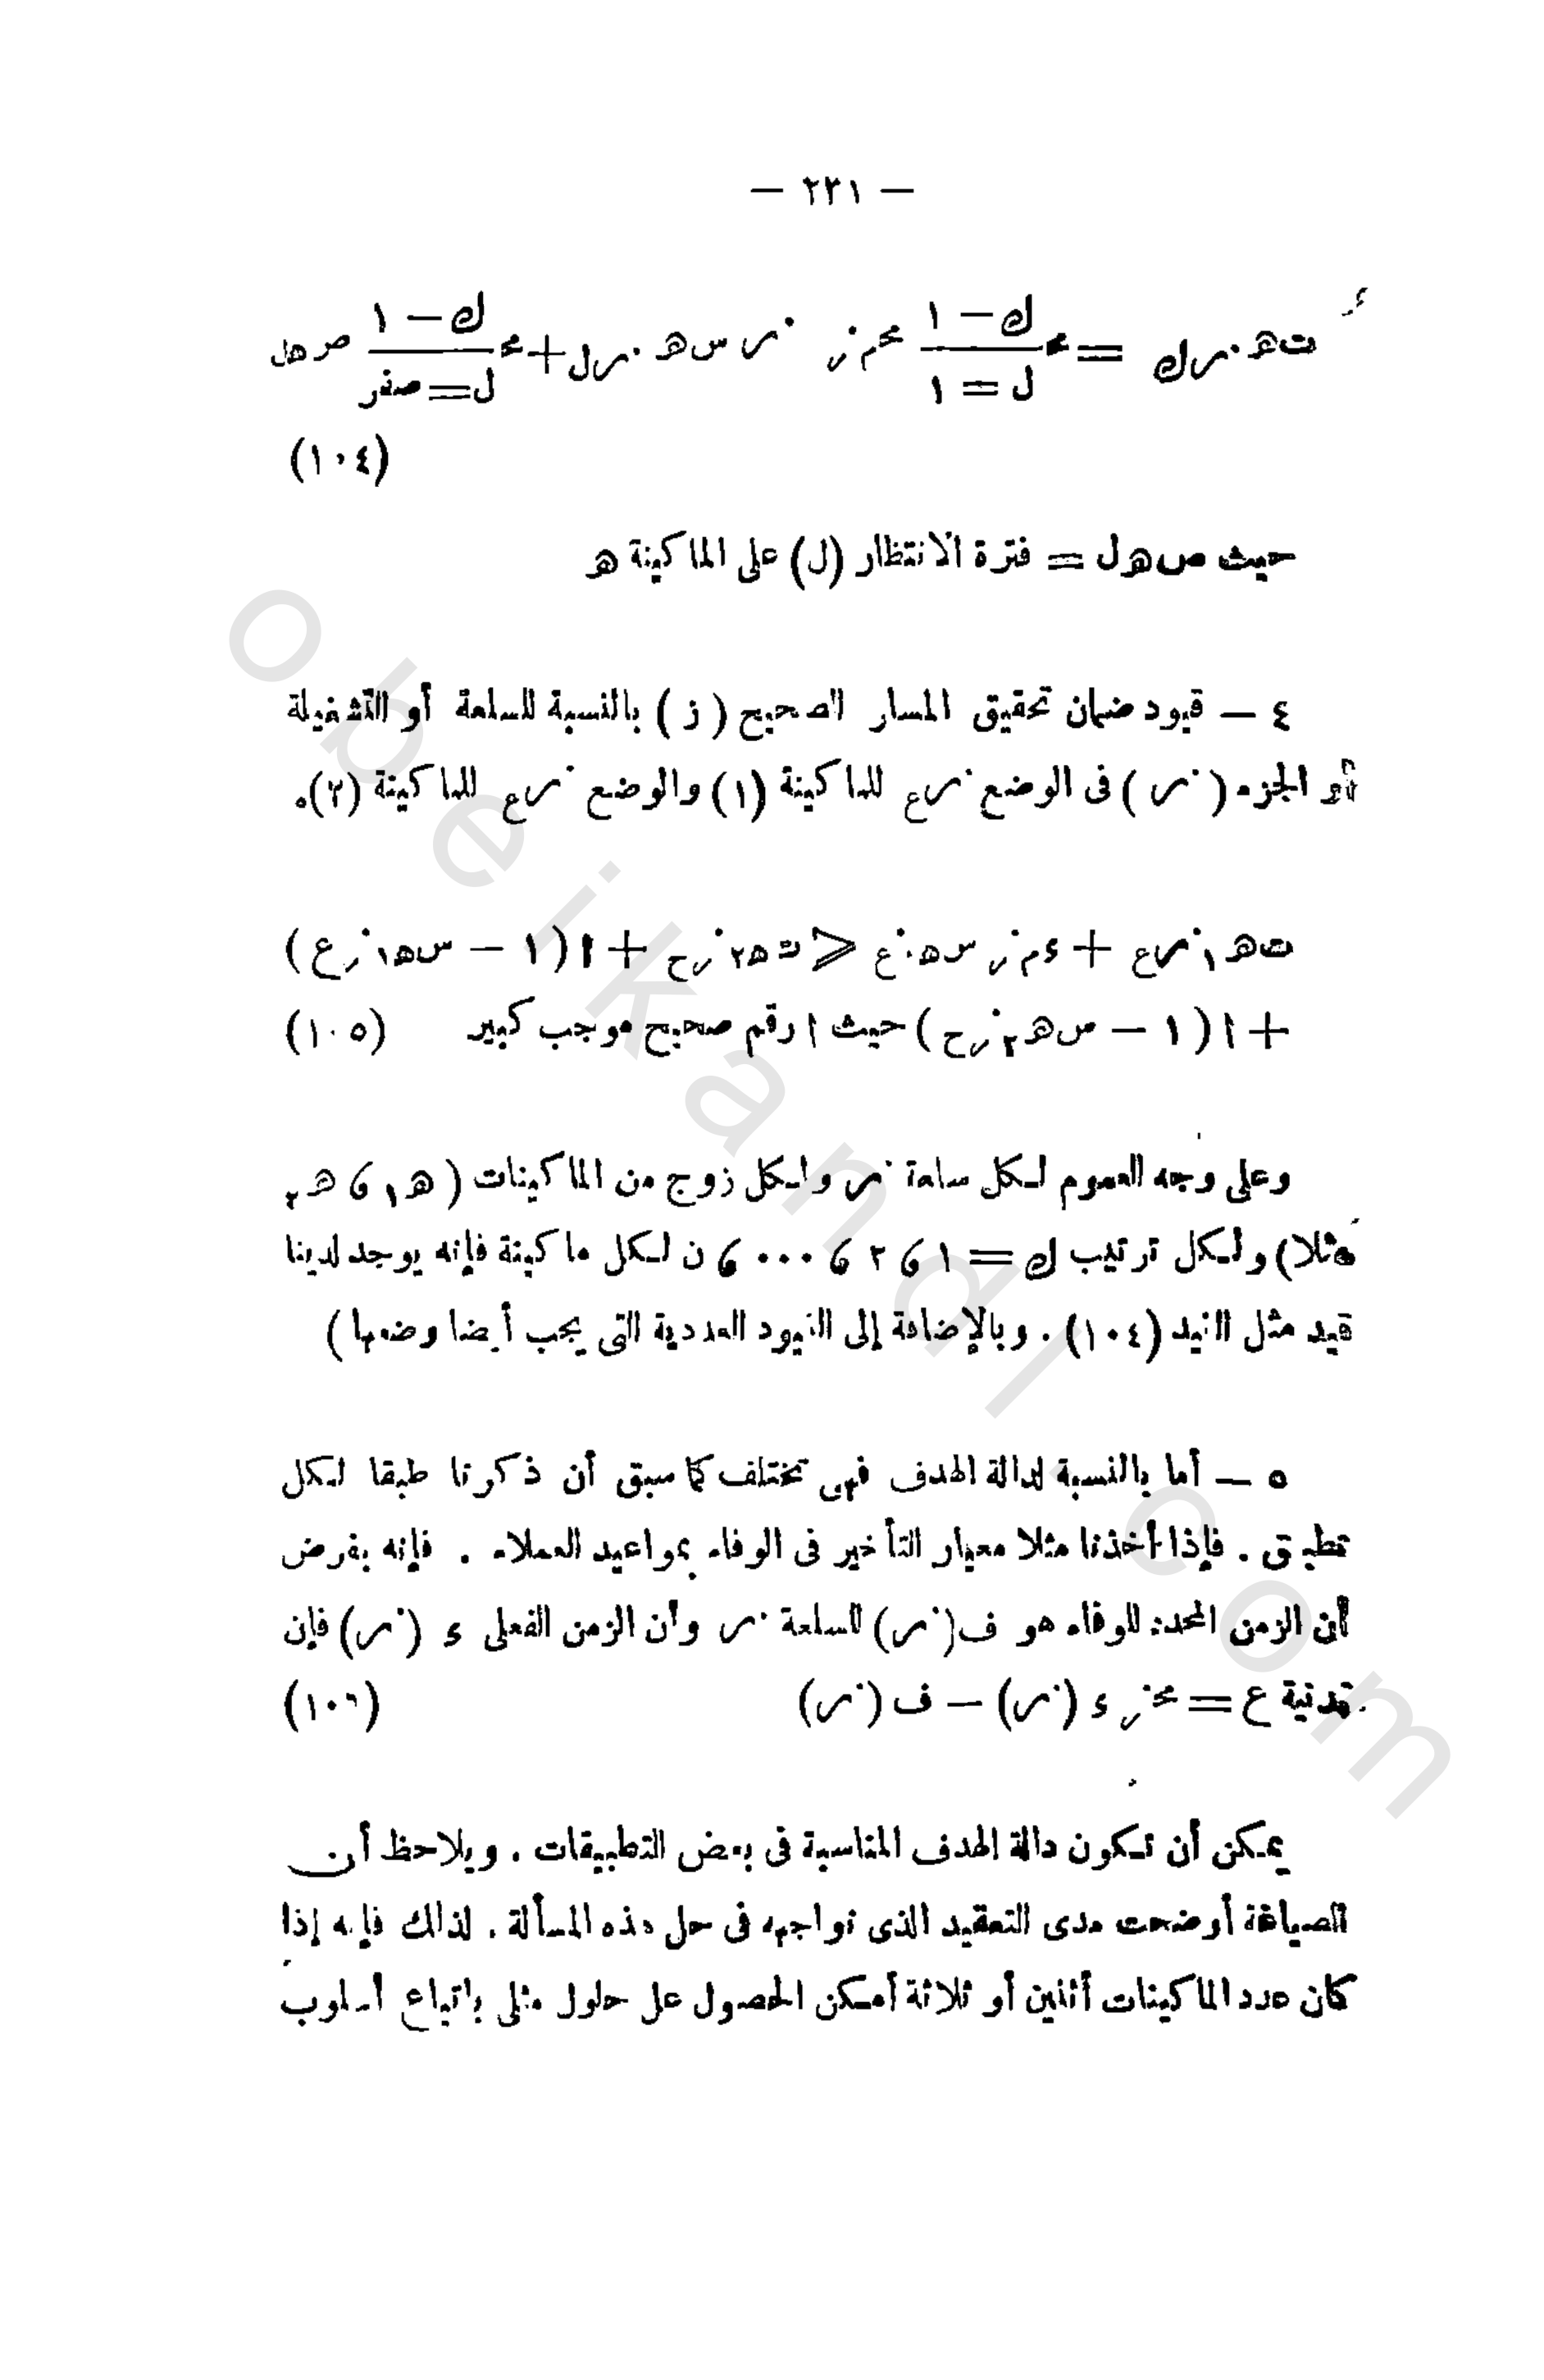 — ٢٣١ —
ك — ١ ك — ١
ت هـ نر ك = مح ـــــ مح م نر نر س هـ نر ل + مح ـــــ ص هـ ل
ل = ١ ل = صفر
(١٠٤)
حيث ص هـ ل = فترة الانتظار (ل) على الماكينة هـ
٤ — قيود ضمان تحقيق المسار الصحيح ( ز ) بالنسبة للسلعة أو التشغيلة
أو الجزء ( نر ) فى الوضع نر ع للماكينة (١) والوضع نر ع للماكينة (٢).
ت هـ ١ نر ع + ء م نر س هـ نر ع ⩽ ت هـ ٢ نر ح + ا (١ — س هـ ١ نر ع )
+ ا (١ — س هـ ٢ نر ح ) حيث ا رقم صحيح موجب كبير (١٠٥)
وعلى وجه العموم لكل سلعة نر ولكل زوج من الماكينات ( هـ ١ ، هـ ٢
مثلا) ولكل ترتيب ك = ١ ، ٢ ، ٠٠٠ ، ن لكل ماكينة فإنه يوجد لدينا
قيد مثل القيد (١٠٤) . وبالإضافة إلى القيود العددية التى يجب أيضا وضعها )
٥ — أما بالنسبة لدالة الهدف فهى تختلف كما سبق أن ذكرنا طبقا لكل
تطبيق . فإذا أخذنا مثلا معيار التأخير فى الوفاء بمواعيد العملاء . فإنه بفرض
أن الزمن المحدد للوفاء هو ف( نر ) للسلعة نر وأن الزمن الفعلى ء ( نر ) فإن
تدنية ع = مح نر ء ( نر ) — ف ( نر ) (١٠٦)
يمكن أن تكون دالة الهدف المناسبة فى بعض التطبيقات . ويلاحظ أن
الصياغة أوضحت مدى التعقيد الذى نواجهه فى حل هذه المسألة . لذلك فإنه إذا
كان عدد الماكينات أثنين أو ثلاثة أمكن الحصول على حلول مثلى باتباع أسلوب
obeikandl.com